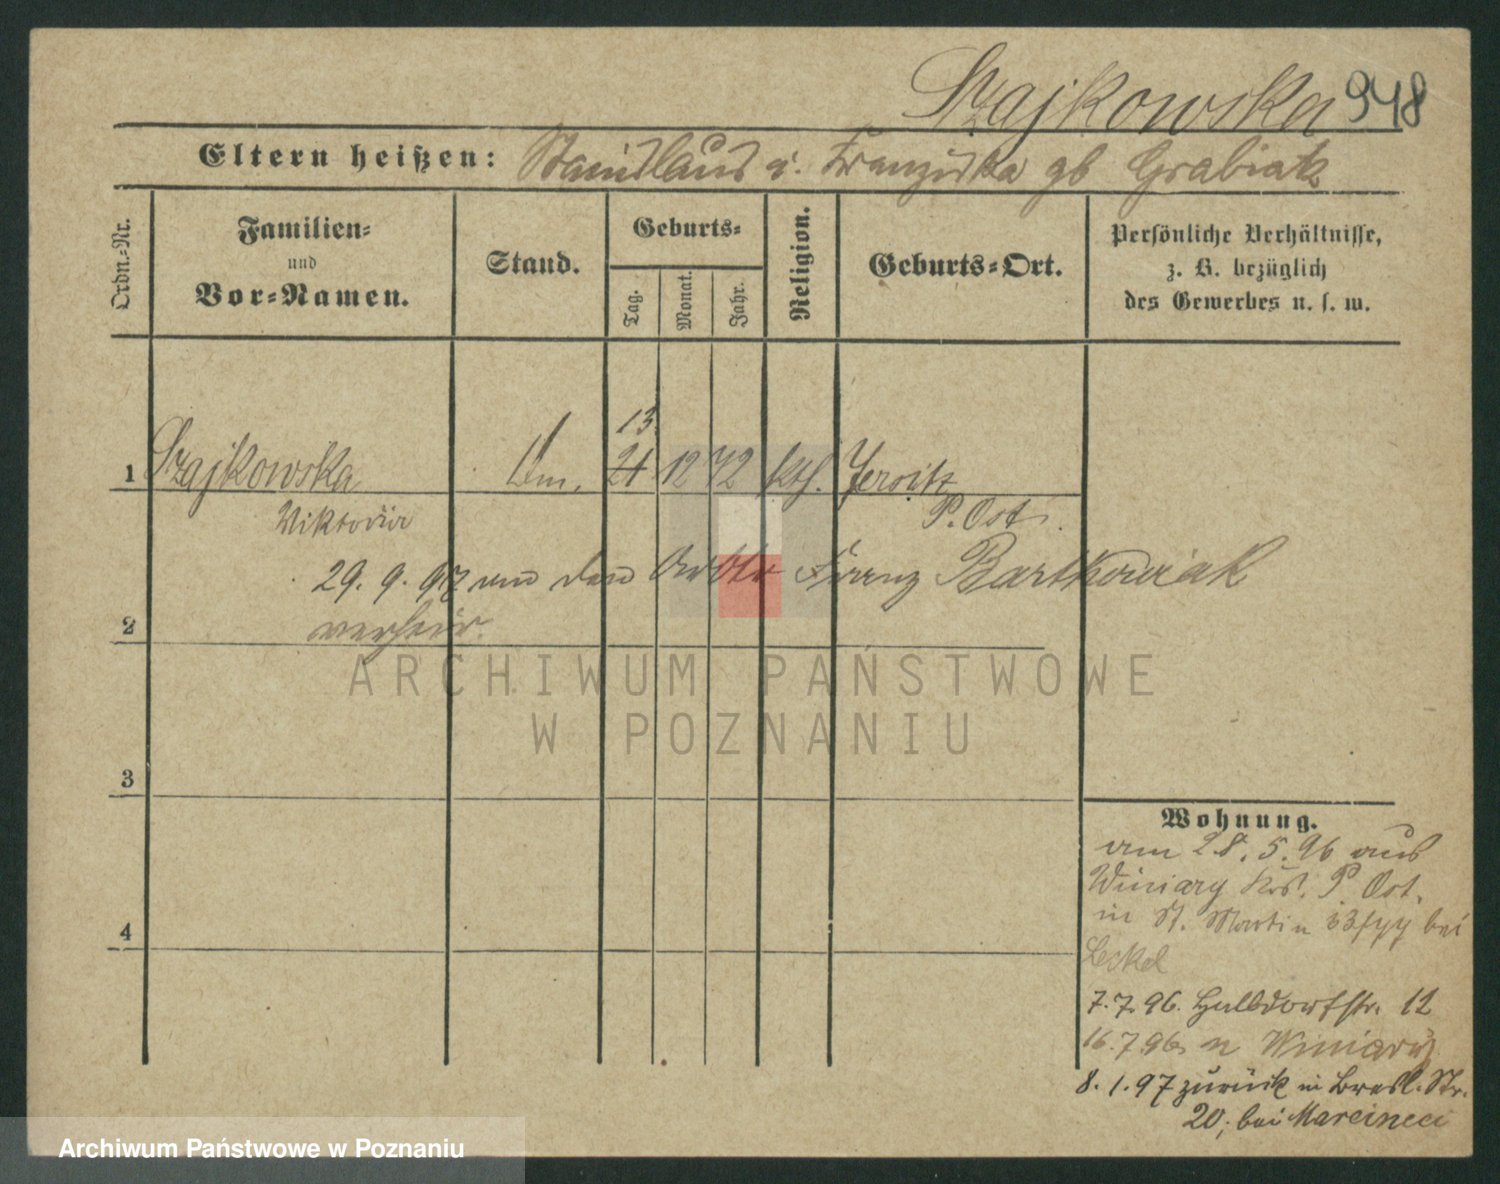 Szajkowska 948
Eltern heißen: Stanislaus u. Franziska gb Grabiak
Ordn.-Nr.
Familien-
und
Vor-Namen.
Stand.
Geburts-
Tag.
Monat.
Jahr.
Religion.
Geburts-Ort.
Persönliche Verhältnisse,
z. B. bezüglich
des Gewerbes u. s. w.
13.
1 Szajkowska 21 12 72 kth. Jersitz
Viktoria P. Ost.
29. 9. 97 an den Arbtr Franz Bartkowiak
2 verheir.
ARCHIWUM PAŃSTWOWE
W POZNANIU
3
Wohnung.
am 28. 5. 96 aus
Winiary Krs. P. Ost.
4 in St. Martin bei
Leckel
7. 7. 96. Halbdorfstr. 12
16. 7. 96 n Winiary
8. 1. 97 zurück in Bresl. Str.
20, bei Marcinec
Archiwum Państwowe w Poznaniu